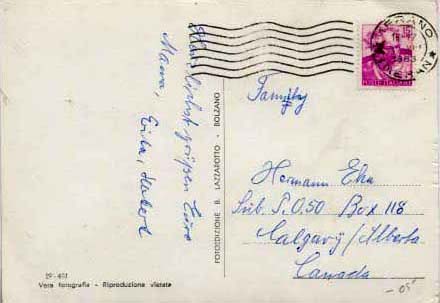 Herzlichst grüssen Eure
Mama,
Erika, Hubert
FOTOEDIZIONE B. LAZZAROTTO - BOLZANO
29-401
Vera fotografia - Riproduzione vietata
MERANO
MERAN
15
POSTE ITALIANE
Family
Hermann Eka
Sub. P.O. 50 Box 118
Calgary / Alberta
Canada